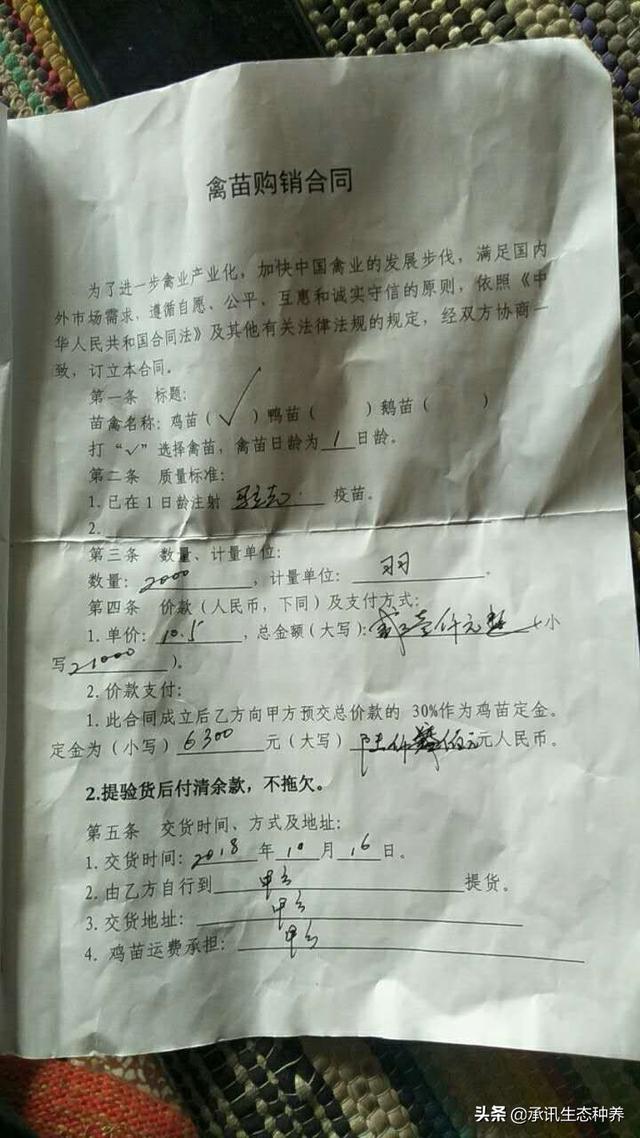 禽苗购销合同
为了进一步禽业产业化，加快中国禽业的发展步伐，满足国内
外市场需求，遵循自愿、公平、互惠和诚实守信的原则，依照《中
华人民共和国合同法》及其他有关法律法规的规定，经双方协商一
致，订立本合同。
第一条 标题：
苗禽名称：鸡苗（√）鸭苗（ ）鹅苗（ ）
打“√”选择禽苗，禽苗日龄为 1 日龄。
第二条 质量标准：
1. 已在1日龄注射 疫苗。
2.
第三条 数量、计量单位：
数量：2000，计量单位：羽。
第四条 价款（人民币，下同）及支付方式：
1. 单价：10.5，总金额（大写）：贰万壹仟元整（小
写 21000）。
2. 价款支付：
1. 此合同成立后乙方向甲方预交总价款的 30%作为鸡苗定金。
定金为（小写）6300 元（大写）陆仟叁佰元元人民币。
2.提验货后付清余款，不拖欠。
第五条 交货时间、方式及地址：
1. 交货时间：2018 年 10 月 16 日。
2. 由乙方自行到 甲方 提货。
3. 交货地址：甲方
4. 鸡苗运费承担：甲方
头条 @承讯生态种养